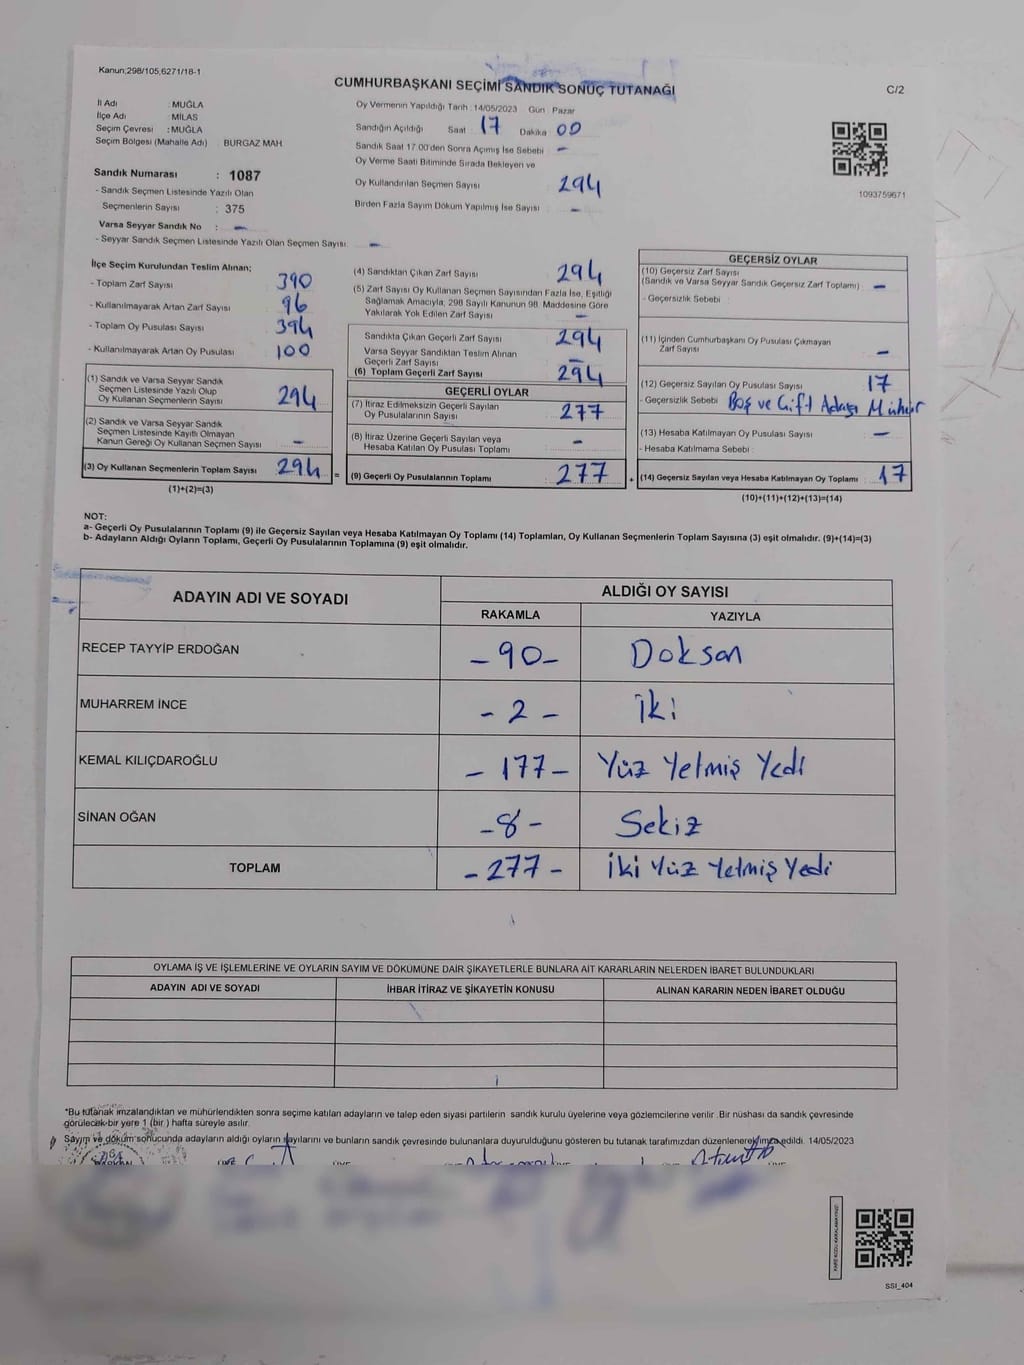 Kanun;298/105,6271/18-1
CUMHURBAŞKANI SEÇİMİ SANDIK SONUÇ TUTANAĞI
C/2
İl Adı : MUĞLA
İlçe Adı : MİLAS
Seçim Çevresi : MUĞLA
Seçim Bölgesi (Mahalle Adı) : BURGAZ MAH
Sandık Numarası : 1087
- Sandık Seçmen Listesinde Yazılı Olan
Seçmenlerin Sayısı : 375
Varsa Seyyar Sandık No : -
- Seyyar Sandık Seçmen Listesinde Yazılı Olan Seçmen Sayısı: -
Oy Vermenin Yapıldığı Tarih : 14/05/2023 Gün : Pazar
Sandığın Açıldığı Saat : 17 Dakika 00
Sandık Saat 17.00'den Sonra Açımış İse Sebebi : -
Oy Verme Saati Bitiminde Sırada Bekleyen ve
Oy Kullandırılan Seçmen Sayısı 294
Birden Fazla Sayım Döküm Yapılmış İse Sayısı : -
1093759671
İlçe Seçim Kurulundan Teslim Alınan;
- Toplam Zarf Sayısı : 390
- Kullanılmayarak Artan Zarf Sayısı : 96
- Toplam Oy Pusulası Sayısı : 394
- Kullanılmayarak Artan Oy Pusulası : 100
(1) Sandık ve Varsa Seyyar Sandık
Seçmen Listesinde Yazılı Olup
Oy Kullanan Seçmenlerin Sayısı : 294
(2) Sandık ve Varsa Seyyar Sandık
Seçmen Listesinde Kayıtlı Olmayan
Kanun Gereği Oy Kullanan Seçmen Sayısı : -
(3) Oy Kullanan Seçmenlerin Toplam Sayısı : 294
(1)+(2)=(3)
(4) Sandıktan Çıkan Zarf Sayısı : 294
(5) Zarf Sayısı Oy Kullanan Seçmen Sayısından Fazla İse, Eşitliği
Sağlamak Amacıyla, 298 Sayılı Kanunun 98. Maddesine Göre
Yakılarak Yok Edilen Zarf Sayısı : -
Sandıkta Çıkan Geçerli Zarf Sayısı : 294
Varsa Seyyar Sandıktan Teslim Alınan
Geçerli Zarf Sayısı : -
(6) Toplam Geçerli Zarf Sayısı : 294
GEÇERLİ OYLAR
(7) İtiraz Edilmeksizin Geçerli Sayılan
Oy Pusulalarının Sayısı : 277
(8) İtiraz Üzerine Geçerli Sayılan veya
Hesaba Katılan Oy Pusulası Toplamı : -
= (9) Geçerli Oy Pusulalarının Toplamı : 277
GEÇERSİZ OYLAR
(10) Geçersiz Zarf Sayısı
(Sandık ve Varsa Seyyar Sandık Geçersiz Zarf Toplamı) : -
- Geçersizlik Sebebi :
(11) İçinden Cumhurbaşkanı Oy Pusulası Çıkmayan
Zarf Sayısı : -
(12) Geçersiz Sayılan Oy Pusulası Sayısı : 17
- Geçersizlik Sebebi : Boş ve Çift Adaya Mühür
(13) Hesaba Katılmayan Oy Pusulası Sayısı : -
- Hesaba Katılmama Sebebi :
+ (14) Geçersiz Sayılan veya Hesaba Katılmayan Oy Toplamı : 17
(10)+(11)+(12)+(13)=(14)
NOT:
a- Geçerli Oy Pusulalarının Toplamı (9) ile Geçersiz Sayılan veya Hesaba Katılmayan Oy Toplamı (14) Toplamları, Oy Kullanan Seçmenlerin Toplam Sayısına (3) eşit olmalıdır. (9)+(14)=(3)
b- Adayların Aldığı Oyların Toplamı, Geçerli Oy Pusulalarının Toplamına (9) eşit olmalıdır.
ADAYIN ADI VE SOYADI
ALDIĞI OY SAYISI
RAKAMLA YAZIYLA
RECEP TAYYİP ERDOĞAN -90- Doksan
MUHARREM İNCE -2- İki
KEMAL KILIÇDAROĞLU -177- Yüz Yetmiş Yedi
SİNAN OĞAN -8- Sekiz
TOPLAM -277- İki Yüz Yetmiş Yedi
OYLAMA İŞ VE İŞLEMLERİNE VE OYLARIN SAYIM VE DÖKÜMÜNE DAİR ŞİKAYETLERLE BUNLARA AİT KARARLARIN NELERDEN İBARET BULUNDUKLARI
ADAYIN ADI VE SOYADI İHBAR İTİRAZ VE ŞİKAYETİN KONUSU ALINAN KARARIN NEDEN İBARET OLDUĞU
*Bu tutanak imzalandıktan ve mühürlendikten sonra seçime katılan adayların ve talep eden siyasi partilerin sandık kurulu üyelerine veya gözlemcilerine verilir .Bir nüshası da sandık çevresinde
görülecek bir yere 1 (bir ) hafta süreyle asılır.
Sayım ve döküm sonucunda adayların aldığı oyların sayılarını ve bunların sandık çevresinde bulunanlara duyurulduğunu gösteren bu tutanak tarafımızdan düzenlenerek imza edildi. 14/05/2023
SSI_404